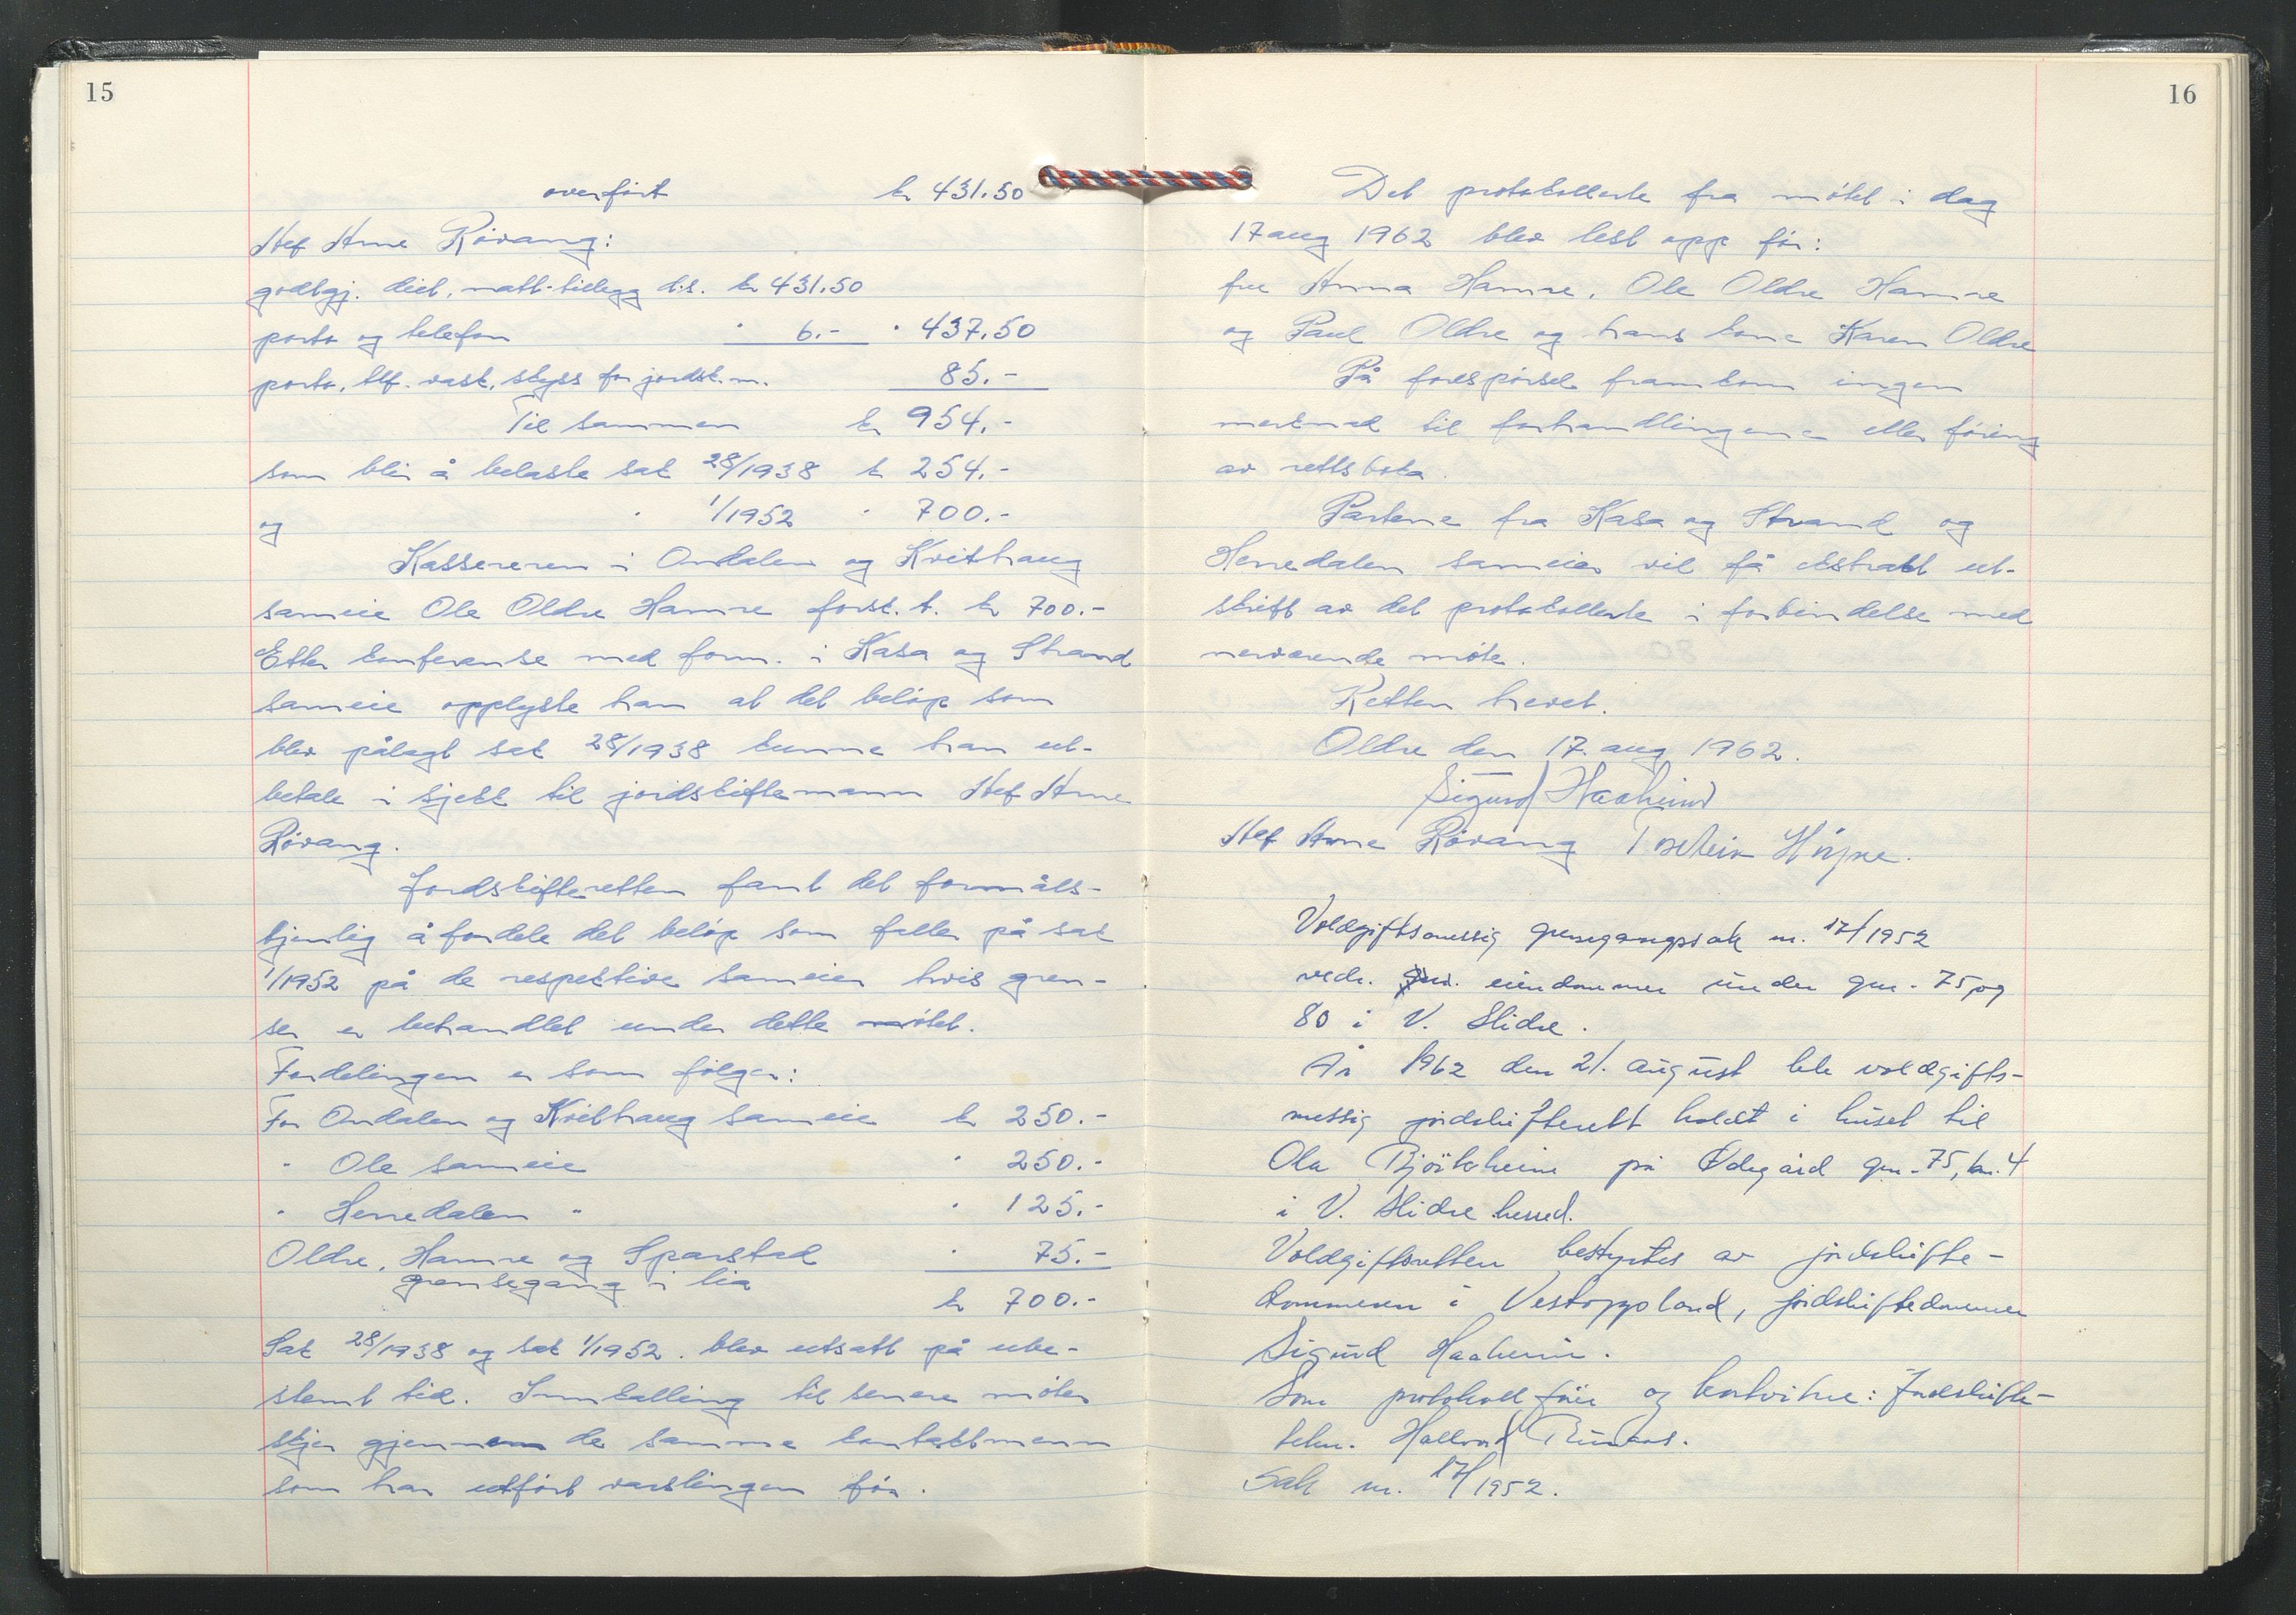 15
overført kr 431.50
Stef Arne Røvang:
godtgj. diet. natt-tillegg d.s. kr 431.50
porto og telefon " 6.- " 437.50
porto, tlf. vask. skyss for jordsk.m. 85.-
Til sammen kr 954.-
som blir å belaste sak 28/1938 kr 254.-
og " 1/1952 " 700.-
Kassereren i Ondalen og Kvithaug
sameie Ole Oldre Hamre forsk. b. kr 700.-
Etter konferanse med form. i Kasa og Strand
sameie opplyste han at det beløp som
blev pålagt sak 28/1938 kunne han ut-
betale i sjekk til jordskiftemann Stef Arne
Røvang.
Jordskifteretten fant det formåls-
tjenlig å fordele det beløp som faller på sak
1/1952 på de respektive sameier hvis gren-
ser er behandlet under dette møtet.
Fordelingen er som følger:
For Ondalen og Kvithaug sameie kr 250.-
" Ole sameie " 250.-
" Herredalen " " 125.-
Oldre, Hamre og Sparstad " 75.-
grensegang i lia
kr 700.-
Sak 28/1938 og sak 1/1952. blev utsatt på ube-
stemt tid. Innkalling til senere møter
skjer gjennom de samme kontaktmenn
som har utført varslingen før.
16
Det protokollerte fra møtet i dag
17 aug 1962 blev lest opp for:
fru Anna Hamre, Ole Oldre Hamre
og Paul Oldre og hans kone Karen Oldre
På forespørsel framkom ingen
merknad til forhandlingene eller føring
av rettsboka.
Partene fra Kasa og Strand og
Herredalen sameier vil få ekstrakt ut-
skrift av det protokollerte i forbindelse med
nerværende møte.
Retten hevet.
Oldre den 17. aug 1962.
Sigurd Haaheim
Stef Arne Røvang Torleiv Høyne.
Voldgiftsmessig grensegangssak nr. 17/1952
vedr. eiendommer under gnr. 75 og
80 i V. Slidre.
År 1962 den 21. august ble voldgifts-
messig jordskifterett holdt i huset til
Ola Bjørkheim på Ødegård gnr. 75, bn. 4
i V. Slidre herred.
Voldgiftsretten bestyrtes av jordskifte-
dommeren i Vestoppland, jordskiftedommer
Sigurd Haaheim.
Som protokollfører og kartvitne: Jordskifte-
tekn. Hallvard
Sak nr. 17/1952.